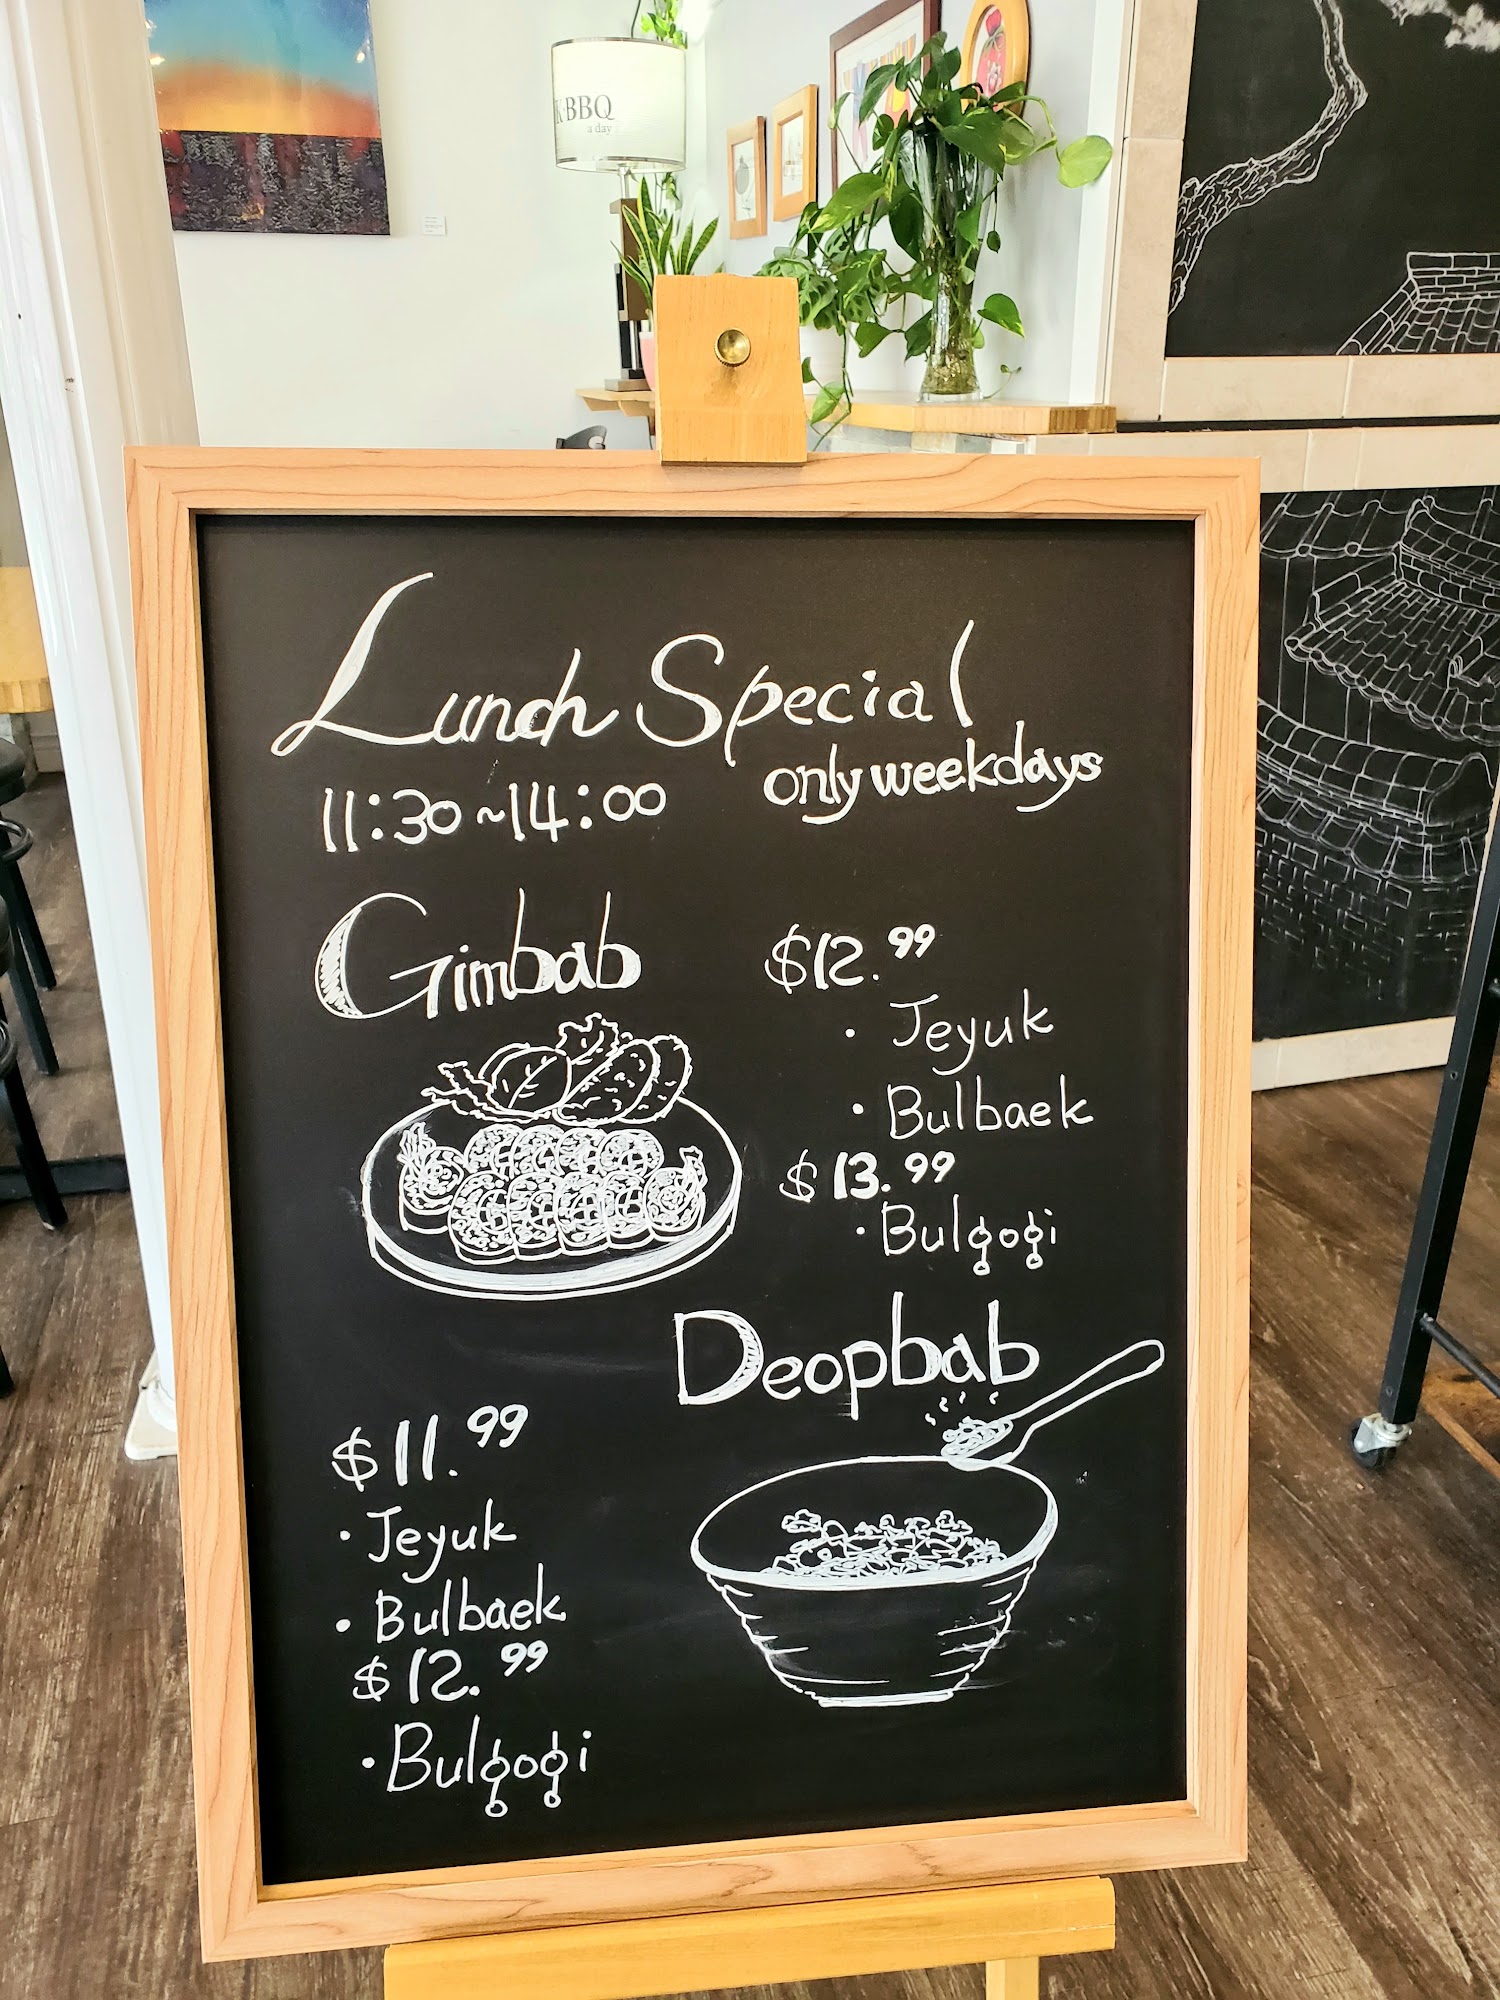 K·BBQ
a day
Lunch Special
only weekdays
11:30~14:00
Gimbab
$12.99
· Jeyuk
· Bulbaek
$13.99
· Bulgogi
Deopbab
$11.99
· Jeyuk
· Bulbaek
$12.99
· Bulgogi